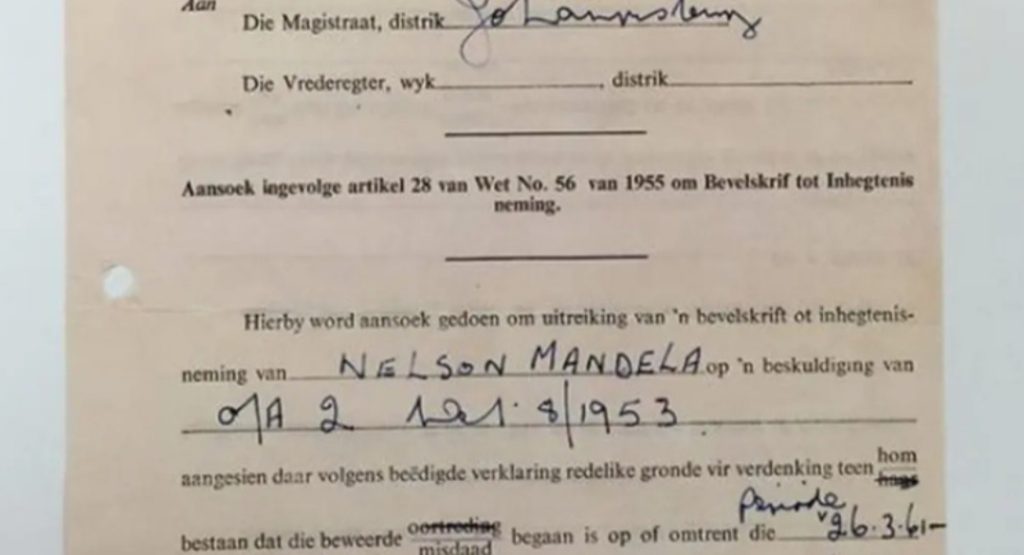 Aan
Die Magistraat, distrik Johannesburg
Die Vrederegter, wyk , distrik
Aansoek ingevolge artikel 28 van Wet No. 56 van 1955 om Bevelskrif tot Inhegtenis
neming.
Hierby word aansoek gedoen om uitreiking van 'n bevelskrift ot inhegtenis-
neming van NELSON MANDELA op 'n beskuldiging van
o/A 2 Wet 8/1953
aangesien daar volgens beëdigde verklaring redelike gronde vir verdenking teen hom
haar
bestaan dat die beweerde oortreding begaan is op of omtrent die periode 26.3.61-
misdaad